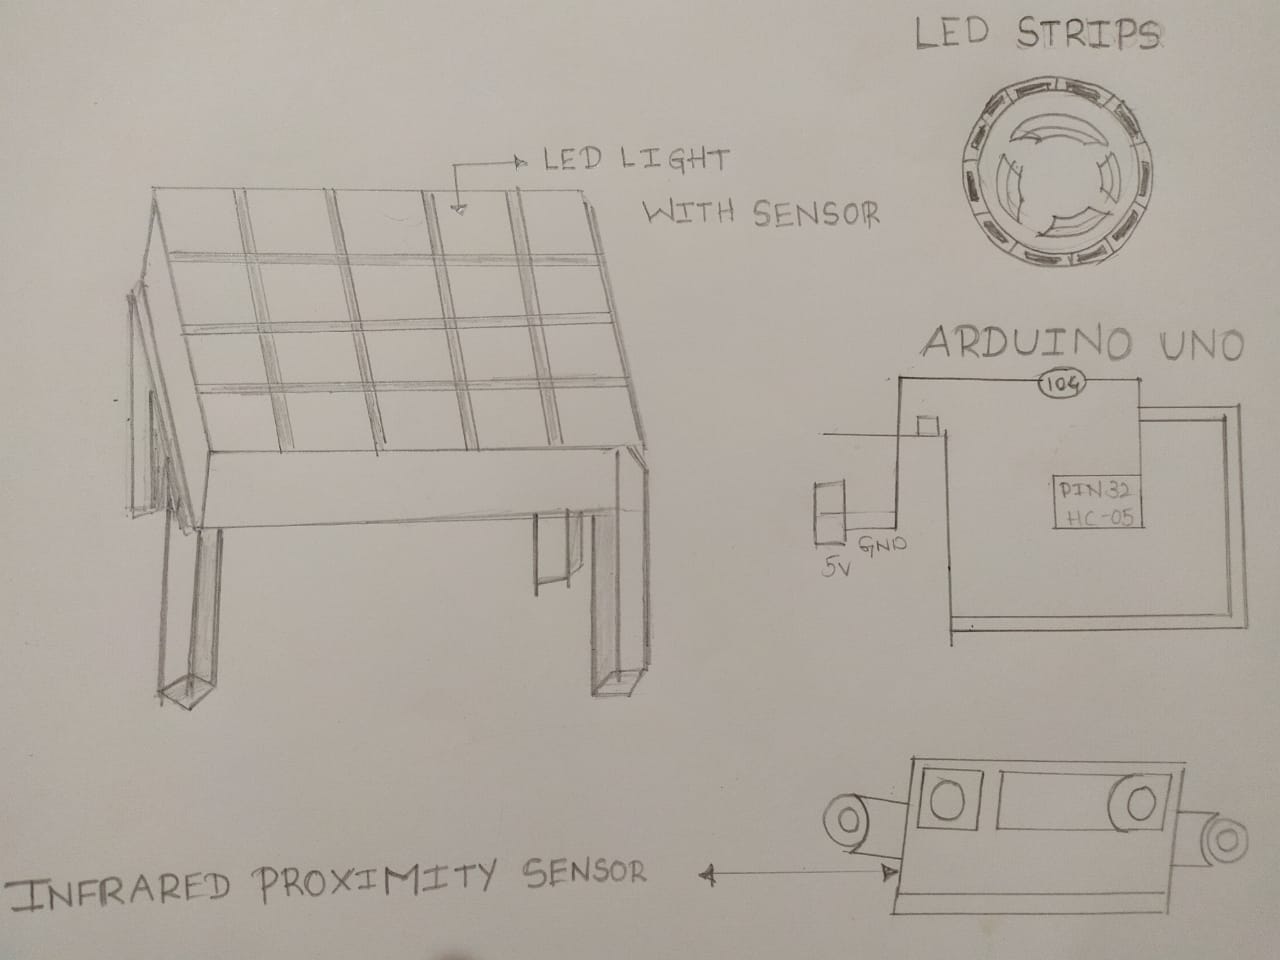 LED STRIPS
LED LIGHT
WITH SENSOR
ARDUINO UNO
PIN 32
HC-05
GND
5V
INFRARED PROXIMITY SENSOR